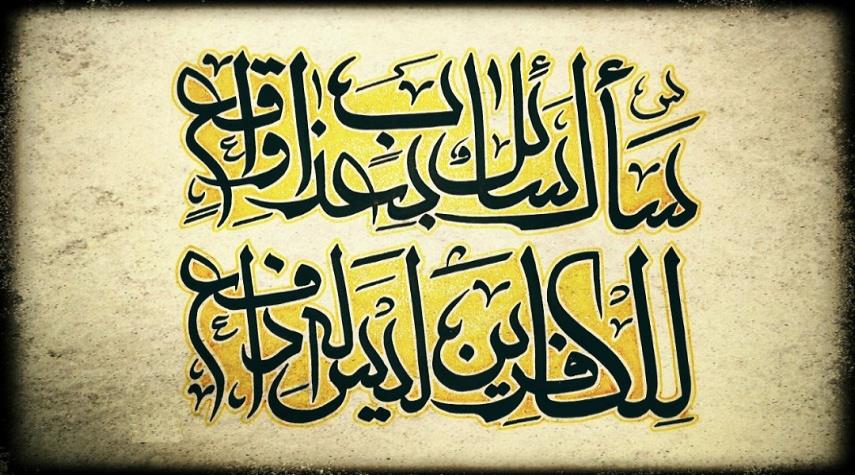 سأل سائل بعذاب واقع
للكافرين ليس له دافع